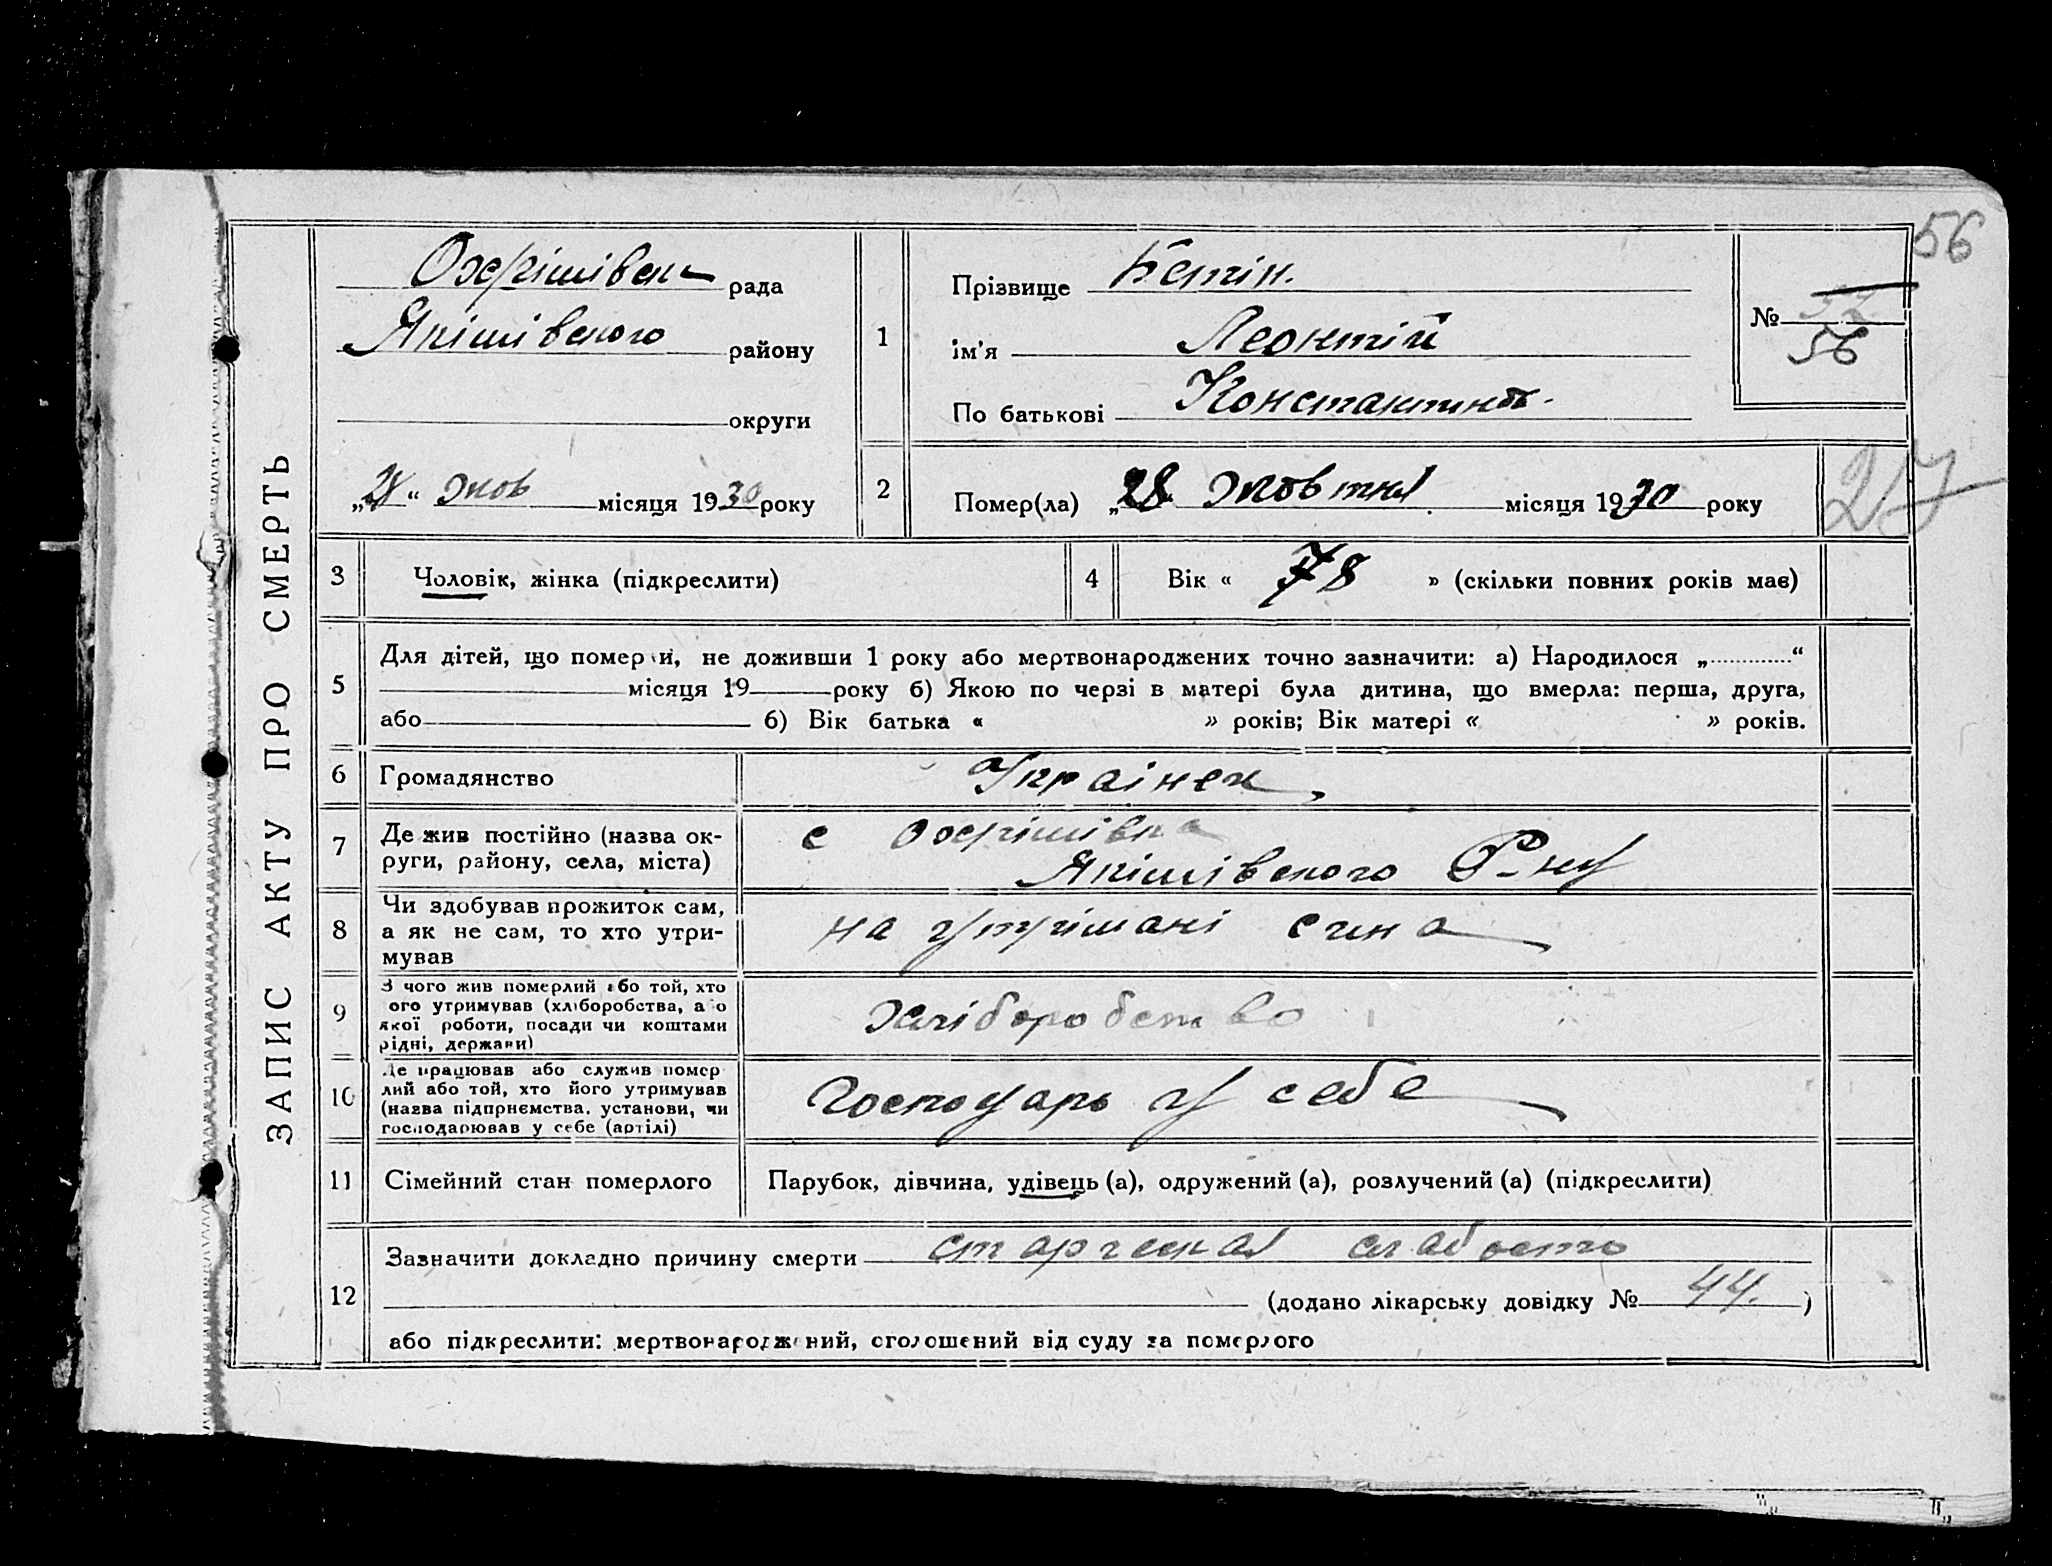 56
ЗАПИС АКТУ ПРО СМЕРТЬ
Охрімівськ рада
Якімівского району
округи
„28“ жов місяця 1930 року
1
Прізвище Бетін.
ім'я Леонтій
По батькові Константинов.
№ 52
56
2
Помер(ла) „28 Жовтня місяця 1930 року
27
3 Чоловік, жінка (підкреслити)
4 Вік « 78 » (скільки повних років має)
5
Для дітей, що померли, не доживши 1 року або мертвонароджених точно зазначити: а) Народилося „.............“
місяця 19 року б) Якою по черзі в матері була дитина, що вмерла: перша, друга,
або б) Вік батька « » років; Вік матері « » років.
6 Громадянство Українец
7 Де жив постійно (назва ок-
руги, району, села, міста)
с Охрімівка
Якімівского Р-ну
8 Чи здобував прожиток сам,
а як не сам, то хто утри-
мував
на утрімані сина
9 З чого жив померлий або той, хто
ого утримував (хліборобства, або
якої роботи, посади чи коштами
рідні, держави)
хліборобство
10 Де працював або служив помер
лий або той, хто його утримував
(назва підприємства, установи, чи
господарював у себе (артілі)
Господарь у себе
11 Сімейний стан померлого
Парубок, дівчина, удівець (а), одружений (а), розлучений (а) (підкреслити)
12
Зазначити докладно причину смерти старческая слабость
(додано лікарську довідку № 44. )
або підкреслити: мертвонароджений, оголошений від суду за померлого